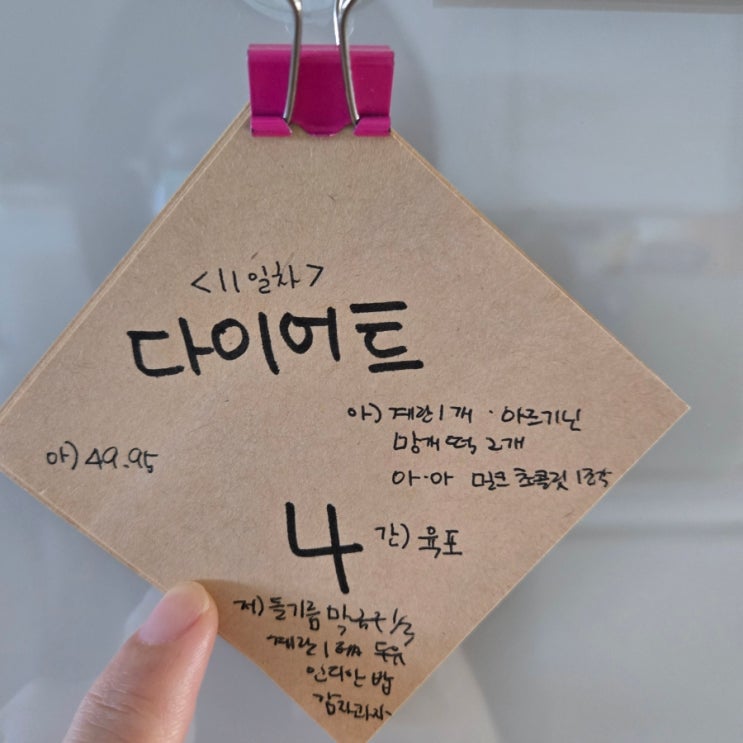 <11일차>
다이어트
아) 계란1개 · 아르기닌
망개떡 2개
아) 49.95
아·아 밀크 초콜릿 1조각
4
간) 육포
저) 들기름 막국수 1/3
계란 1개 두유
인디안 밥
감자과자